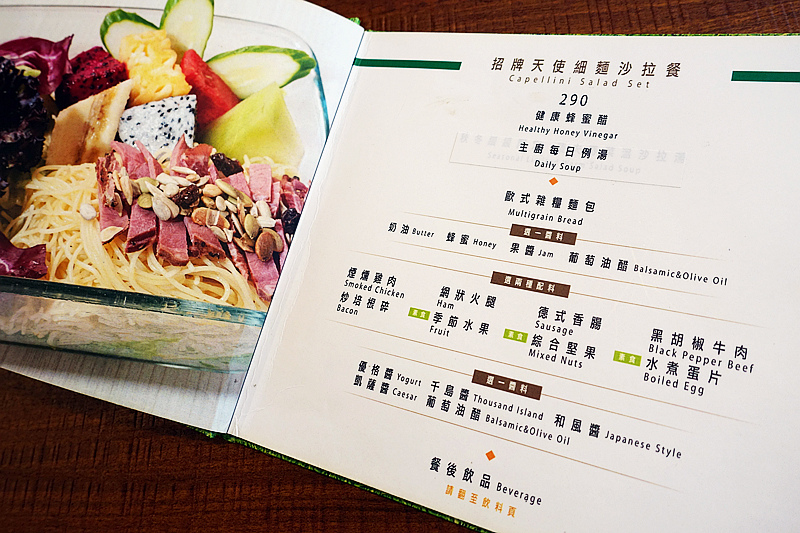 招牌天使細麵沙拉餐
Capellini Salad Set
290
健康蜂蜜醋
Healthy Honey Vinegar
主廚每日例湯
Daily Soup
歐式雜糧麵包
Multigrain Bread
選一醬料
奶油 Butter 蜂蜜 Honey 果醬 Jam 葡萄油醋 Balsamic&Olive Oil
選兩種配料
煙燻雞肉 網狀火腿 德式香腸 黑胡椒牛肉
Smoked Chicken Ham Sausage Black Pepper Beef
炒培根碎 素食 季節水果 素食 綜合堅果 素食 水煮蛋片
Bacon Fruit Mixed Nuts Boiled Egg
選一醬料
優格醬 Yogurt 千島醬 Thousand Island 和風醬 Japanese Style
凱薩醬 Caesar 葡萄油醋 Balsamic&Olive Oil
餐後飲品 Beverage
請翻至飲料頁